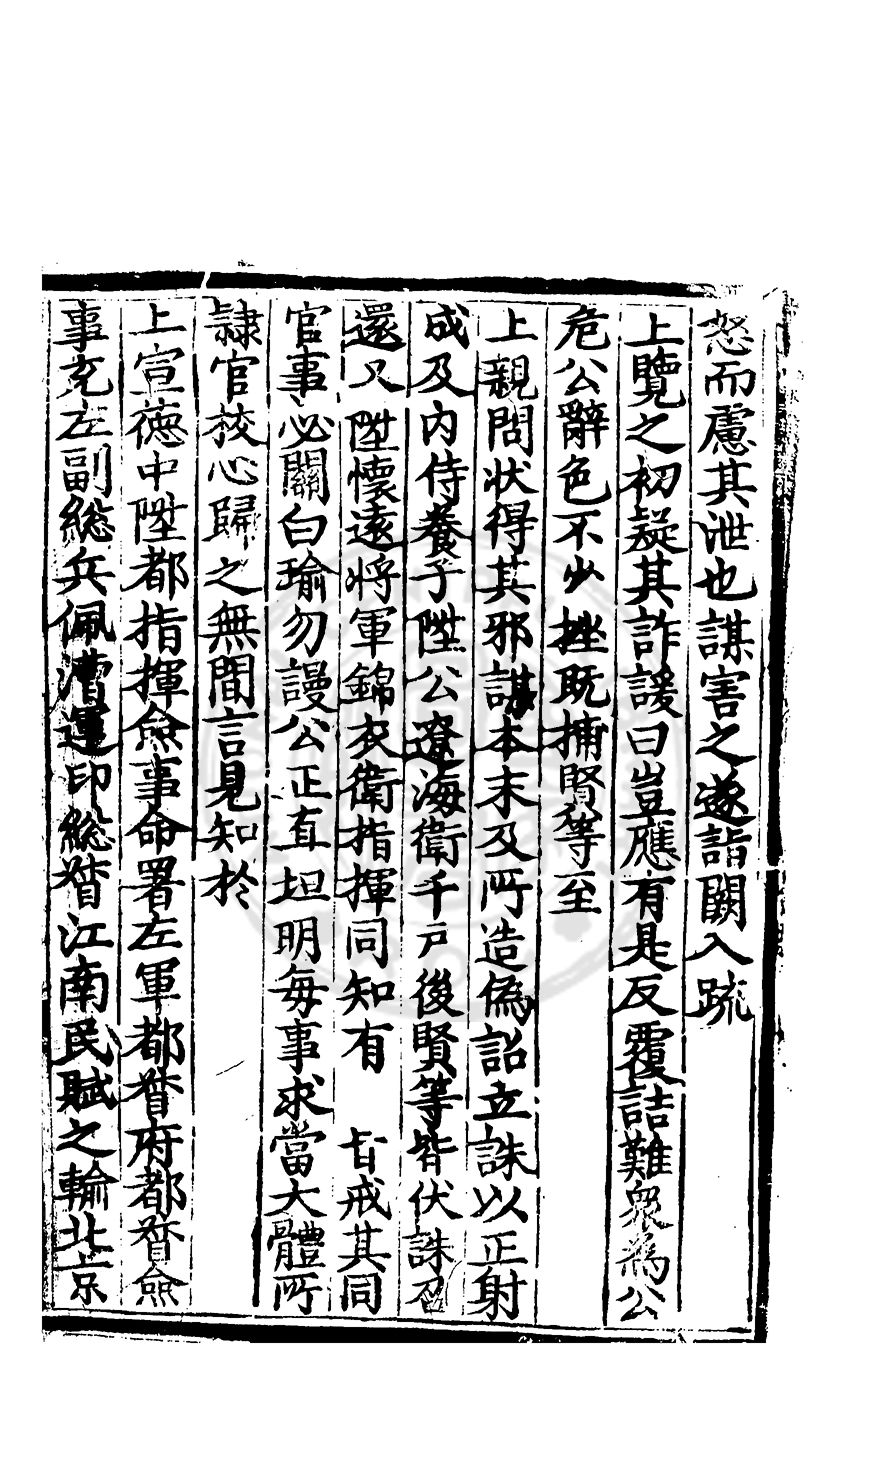 怒而慮其泄也謀害之遂詣闕入疏
上覽之初疑其詐諼曰豈應有是反覆詰難衆為公
危公辭色不少挫既捕賢等至
上親問狀得其邪謀本末及所造偽詔立誅以正射
成及内侍養子陞公遼海衛千戶後賢等皆伏誅召
還又陞懷遠將軍錦衣衛指揮同知有 旨戒其同
官事必關白瑜勿謾公正直坦明毎事求當大體所
隷官校心歸之無間言見知於
上宣徳中陞都指揮僉事命署左軍都督府都督僉
事充左副総兵佩漕運印総督江南民賦之輸北京